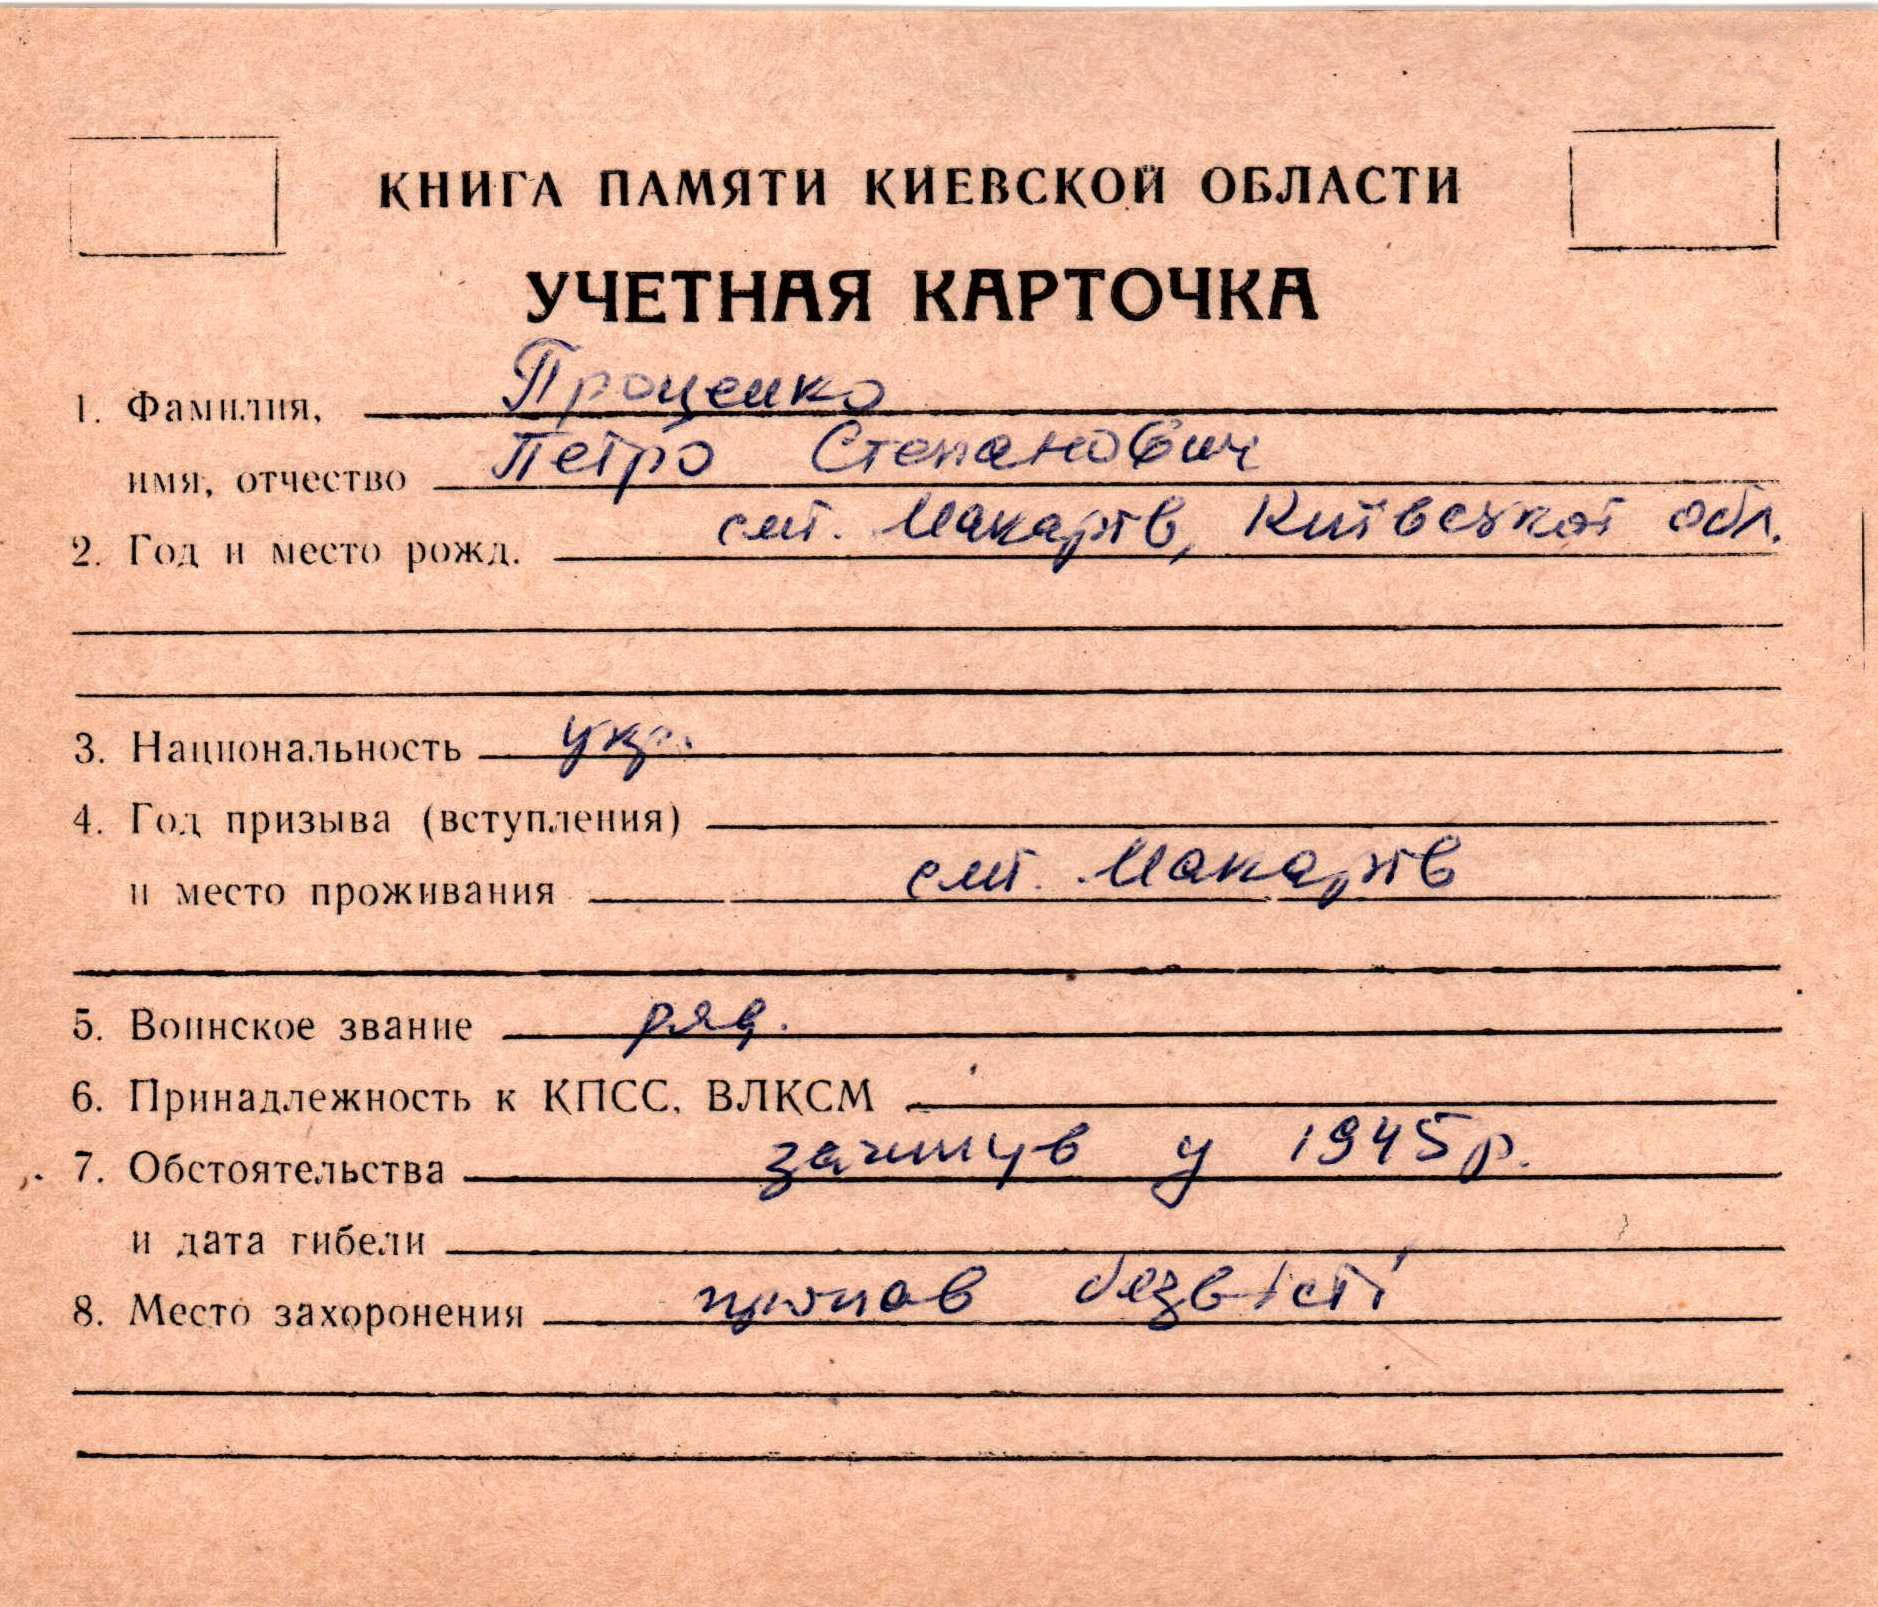 КНИГА ПАМЯТИ КИЕВСКОЙ ОБЛАСТИ
УЧЕТНАЯ КАРТОЧКА
1. Фамилия, Проценко
имя, отчество Петро Степанович
2. Год и место рожд. смт. Макарів, Київської обл.
3. Национальность укр.
4. Год призыва (вступления)
и место проживания смт. Макарів
5. Воинское звание ряд.
6. Принадлежность к КПСС, ВЛКСМ
7. Обстоятельства загинув у 1945 р.
и дата гибели
8. Место захоронения пропав безвісті